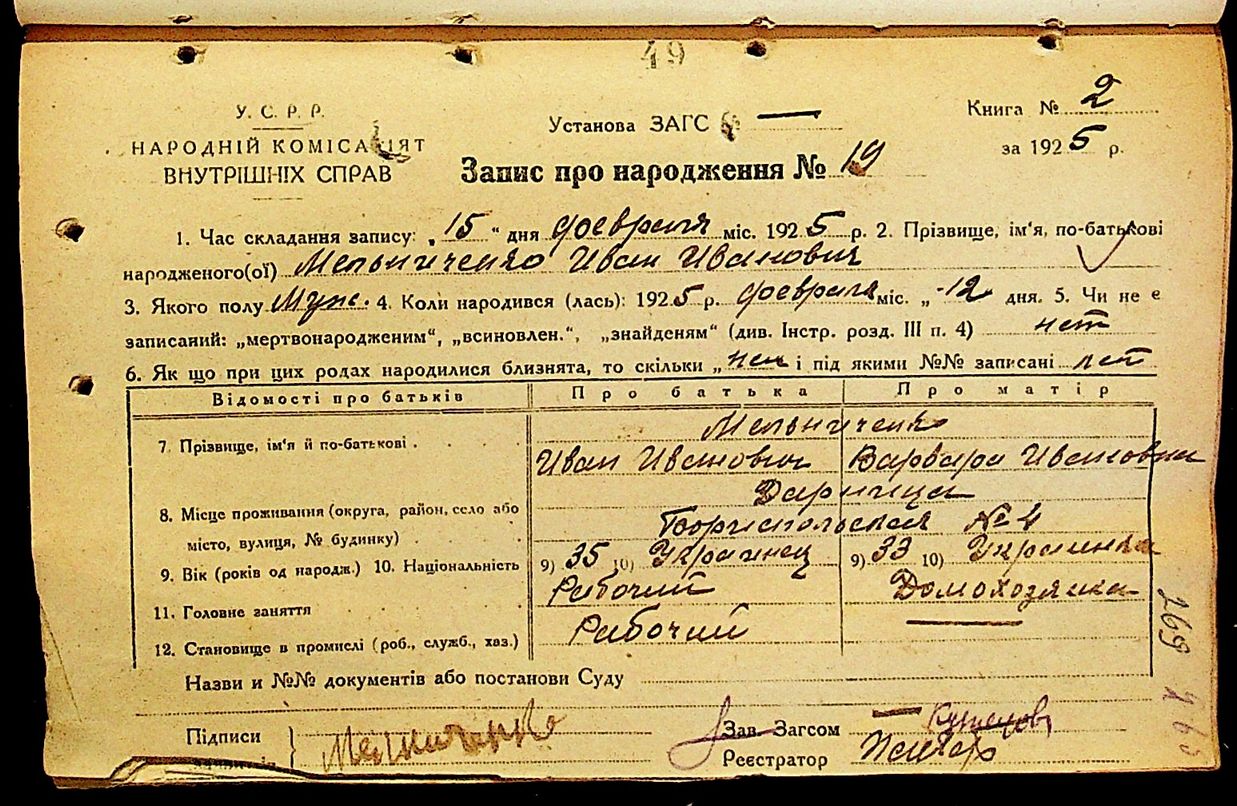 49
У. С. Р. Р.
НАРОДНІЙ КОМІСАРІЯТ
ВНУТРІШНІХ СПРАВ
Установа ЗАГС —
Книга № 2
за 1925 р.
Запис про народження № 19
1. Час складання запису: „15“ дня февраля міс. 1925 р. 2. Прізвище, ім'я, по-батькові
народженого(ої) Мельниченко Иван Иванович
3. Якого полу Муж. 4. Коли народився (лась): 1925 р. февраля міс. „12 дня. 5. Чи не є
записаний: „мертвонародженим“, „всиновлен.“, „знайденям“ (див. Інстр. розд. III п. 4) нет
6. Як що при цих родах народилися близнята, то скільки „нет і під якими №№ записані нет
Відомості про батьків Про батька Про матір
7. Прізвище, ім'я й по-батькові . Мельниченко
Иван Иванович Варвара Ивановна
8. Місце проживання (округа, район, село або
місто, вулиця, № будинку) Дарница
Бориспольская № 4
9. Вік (років од народж.) 10. Національність 9) 35 10) Украинец 9) 33 10) Украинка
11. Головне заняття Рабочий Домохозяйка
12. Становище в промислі (роб., служб., хаз.) Рабочий —
Назви и №№ документів або постанови Суду
Підписи } Мельниченко
Зав. Загсом —
Реєстратор
269